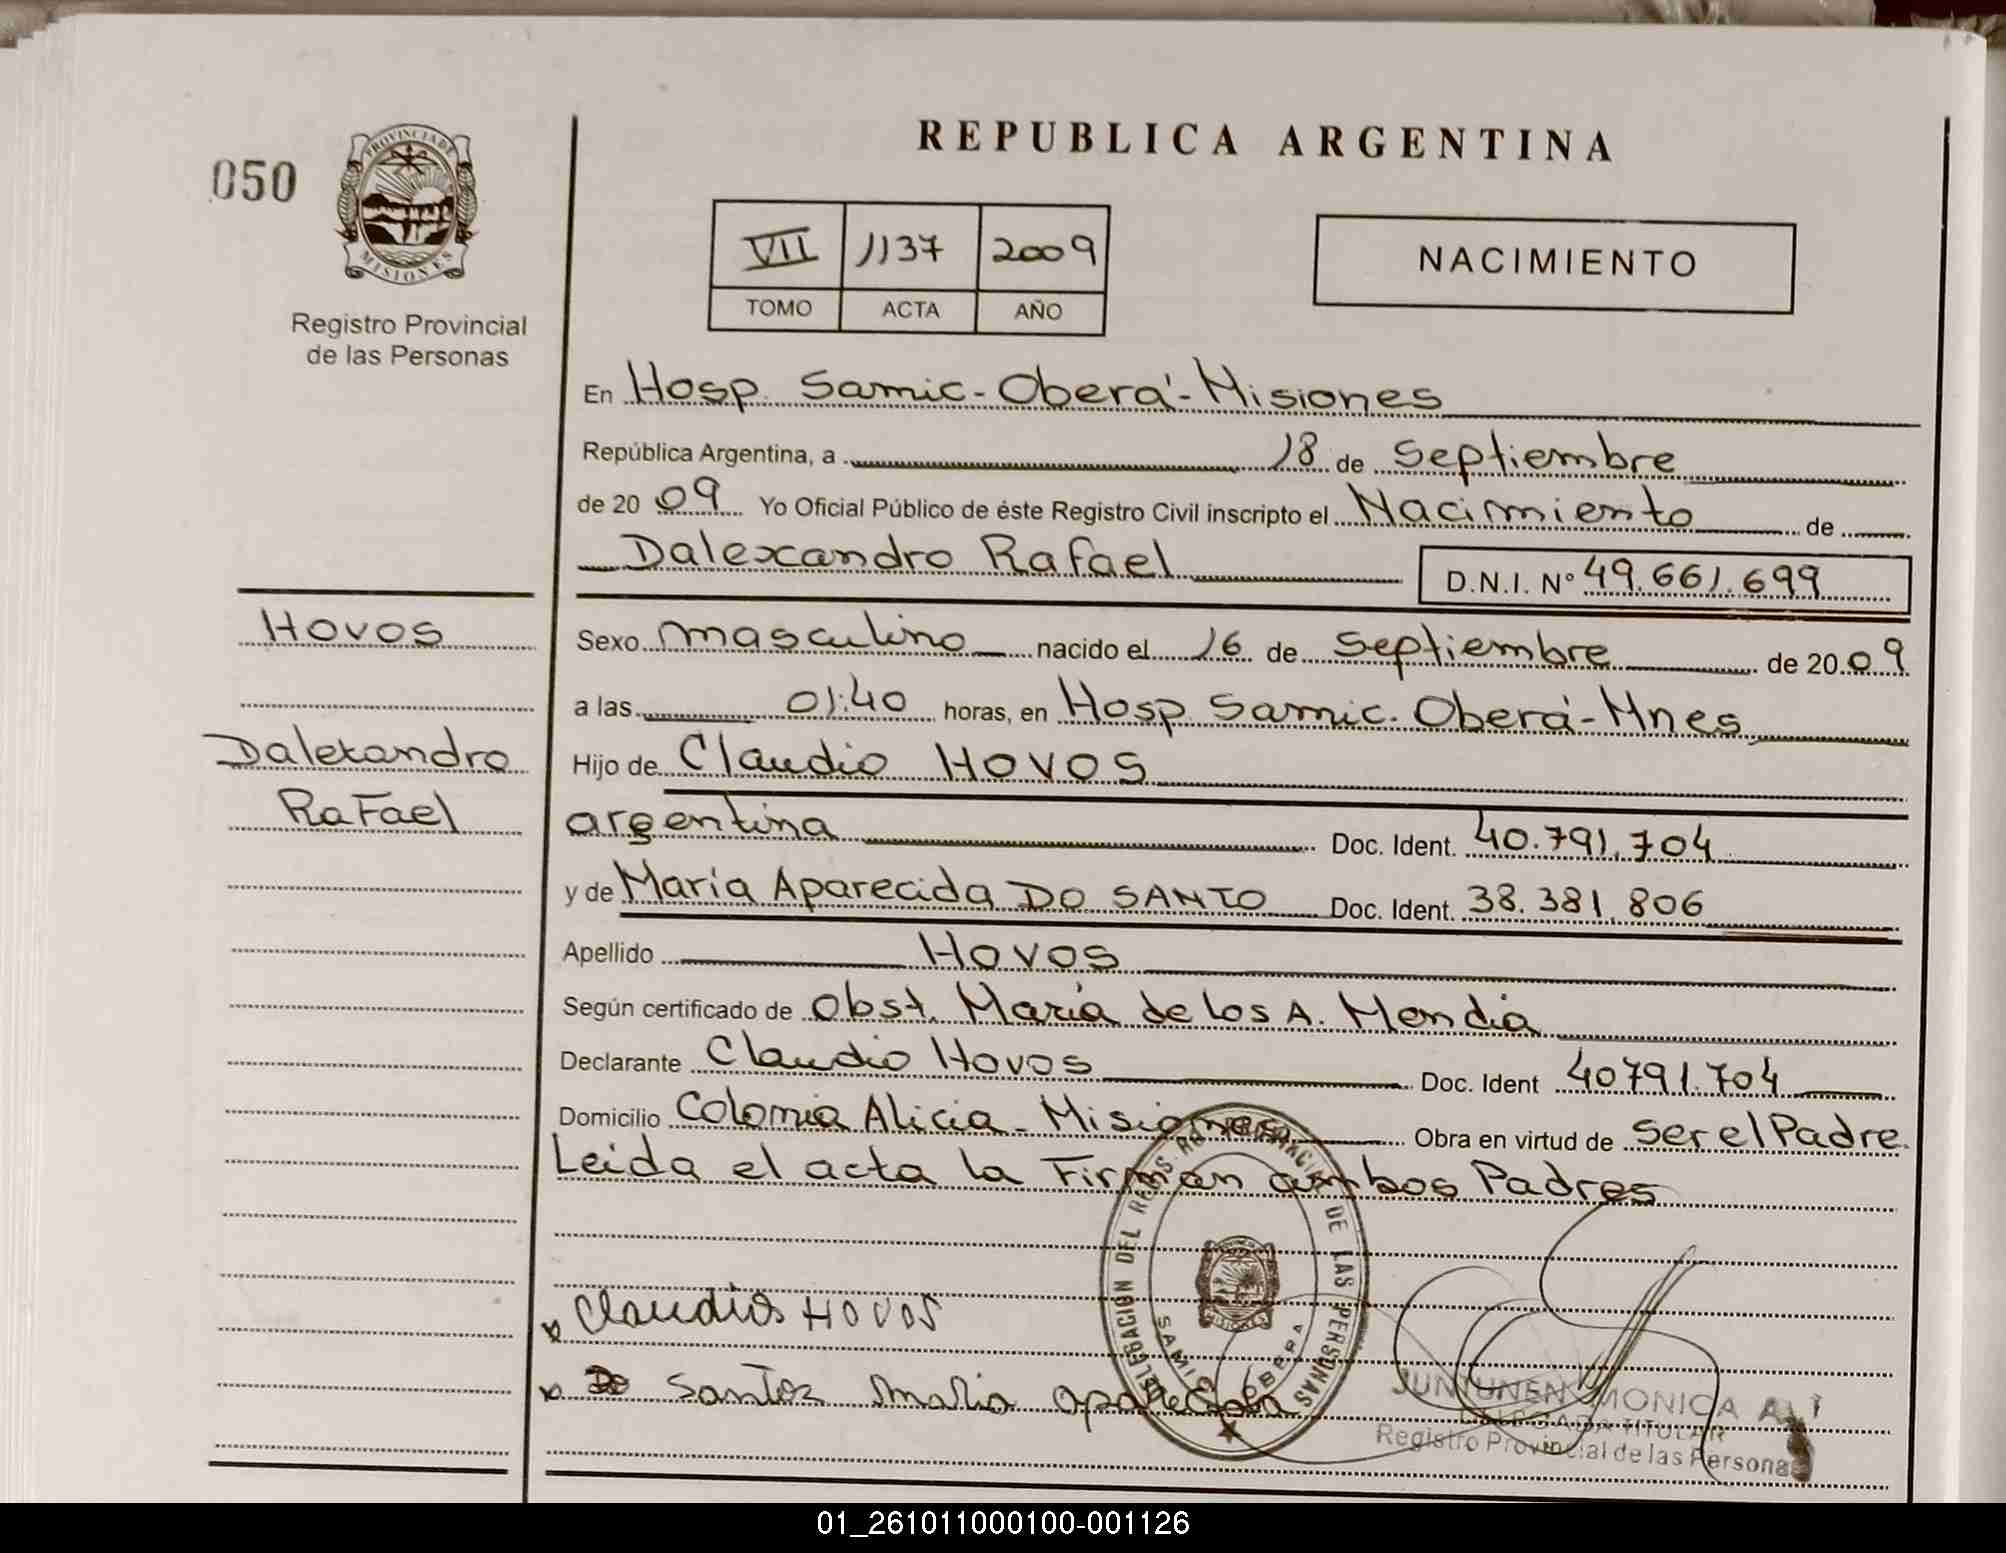 REPUBLICA ARGENTINA
050
PROVINCIA DE MISIONES
Registro Provincial
de las Personas
VII 1137 2009
TOMO ACTA AÑO
NACIMIENTO
En Hosp. Samic - Oberá - Misiones
República Argentina, a 18 de Septiembre
de 2009 Yo Oficial Público de éste Registro Civil inscripto el Nacimiento de
Dalexandro Rafael D.N.I. Nº 49.661.699
HOVOS
Dalexandro
Rafael
Sexo masculino nacido el 16 de Septiembre de 2009
a las 01:40 horas, en Hosp Samic. Oberá - Mnes
Hijo de Claudio HOVOS
argentina Doc. Ident. 40.791.704
y de María Aparecida DO SANTO Doc. Ident. 38.381.806
Apellido HOVOS
Según certificado de Obst. María de los A. Mendia
Declarante Claudio Hovos Doc. Ident 40791.704
Domicilio Colonia Alicia - Misiones Obra en virtud de ser el Padre.
Leida el acta la Firman ambos Padres
Claudio HOVOS
Do Santos maria aparecida
DELEGACION DEL REGISTRO PROVINCIAL DE LAS PERSONAS
SAMIC OBERA
MISIONES
JUNTUNEN MONICA A.
DELEGADA TITULAR
Registro Provincial de las Personas
01_261011000100-001126